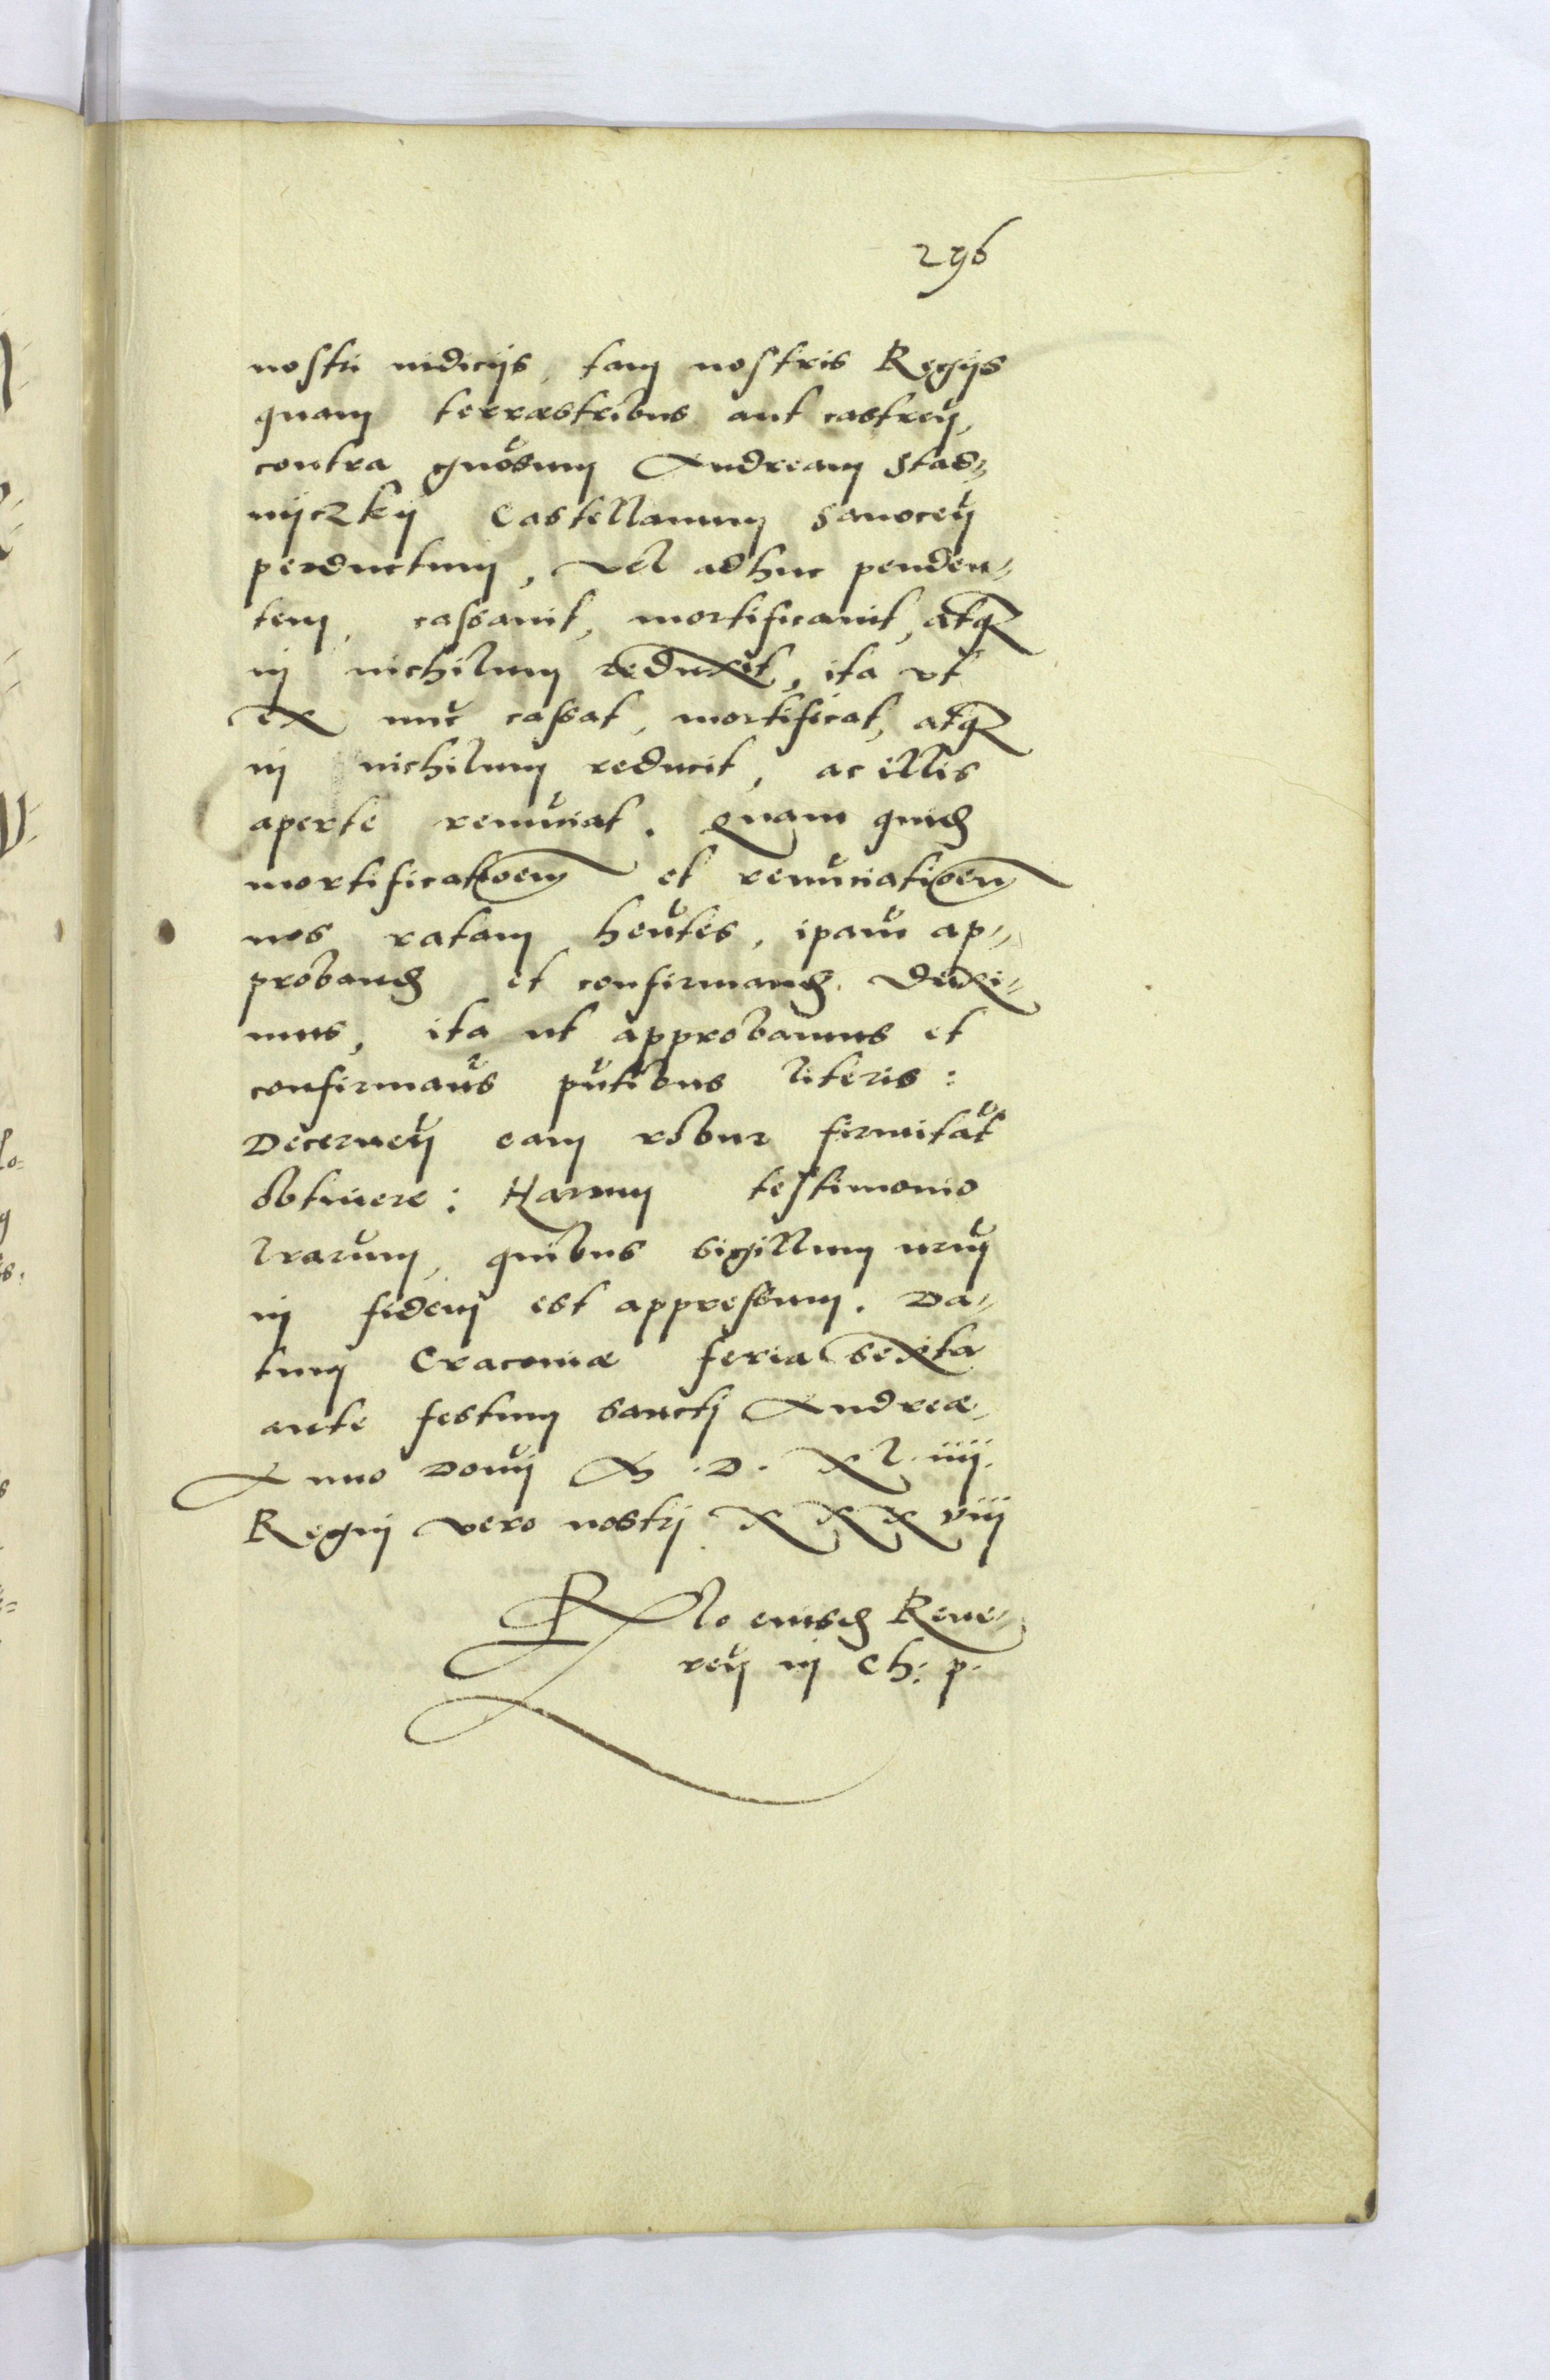 296
nostri iudicijs, tam nostris Regijs
quam terræstribus aut castreñ,
contra gnõsum Andream Stad„
nijczkij Castellanum Sanoceñ
perductum, vel adhuc penden„
tem, cassauit, mortificauit, atq3
in nichilum reduxit, ita vt
ex nuc̃ cassat, mortificat, atq3
in nichilum reducit, ac illis
aperte renũciat. Quam quid3
mortificatioem̃ et renũciatioem̃
nos ratam hẽntes, ipam̃ ap„
proband3 et confirmand3 duxi„
mus, ita ut approbamus et
confirmam̃s pñtibus literis:
Decerneñ eam robur firmitat̃
obtinere: Harum testimonio
lrarum̃, quibus sigillum nrum̃
in fidem est appressum. Da„
tum Cracouiæ feria sexta
ante festum Sancti Andreæ
Anno Domĩ M. D. XL. iiij.
Regni vero nostri XXXviij
Rlo eiusd3 Reue„
reñ in Ch: p.